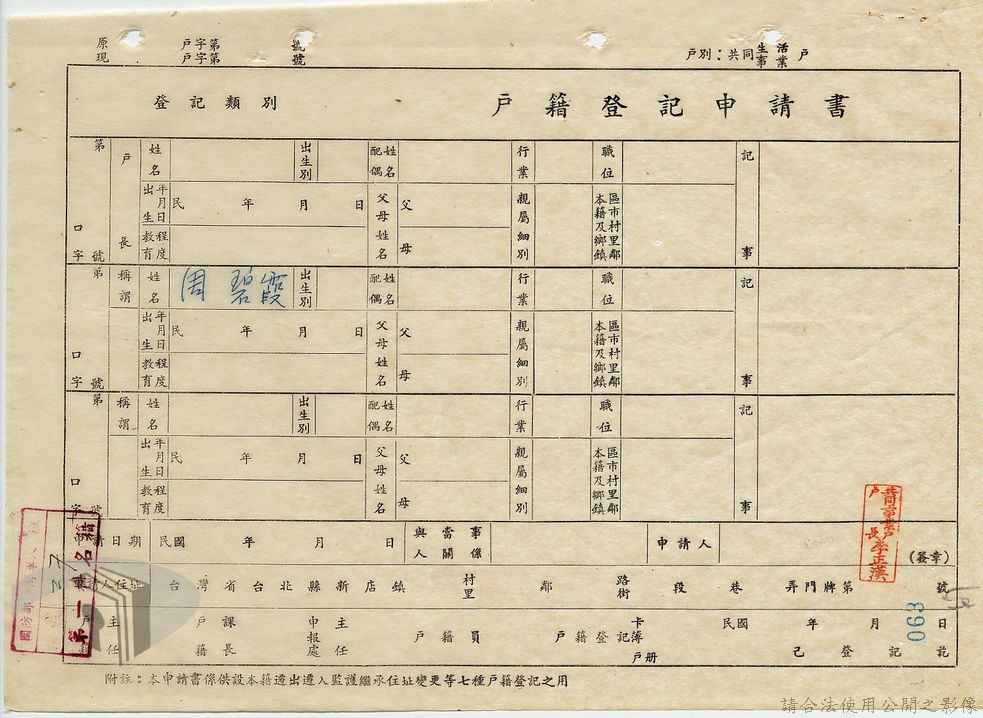 原 戶字第 號
現 戶字第 號
戶別：共同生活戶
事業
登記類別 戶籍登記申請書
第 口字 號
戶長 姓名 出生別 配偶姓名 行業 職位 記事
出生年月日 民 年 月 日 父母姓名 父 母 親屬細別 本籍及鄉鎮區市村里鄰
教育程度
第 口字 號
稱謂 姓名 周碧霞 出生別 配偶姓名 行業 職位 記事
出生年月日 民 年 月 日 父母姓名 父 母 親屬細別 本籍及鄉鎮區市村里鄰
教育程度
第 口字 號
稱謂 姓名 出生別 配偶姓名 行業 職位 記事
出生年月日 民 年 月 日 父母姓名 父 母 親屬細別 本籍及鄉鎮區市村里鄰
教育程度
共同事業戶
戶長李正漢
申請日期 民國 年 月 日 與當事人關係 申請人 (簽章)
申請人住址 台灣省台北縣新店鎮 村里 鄰 路街 段 巷 弄門牌第 號
戶主 戶課 申主 戶籍員 戶籍登記卡簿 民國 年 月 日
任 籍長 報處任 戶冊 已登記訖
063
27
國防部
第一
名籍
附註：本申請書係供設本籍遷出遷入監護繼承住址變更等七種戶籍登記之用
請合法使用公開之影像